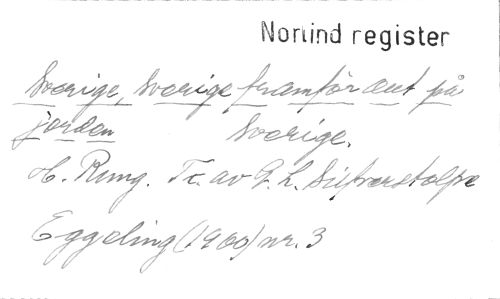 Norlind register
Sverige, Sverige framför allt på
jorden Sverige.
H. Rung. Tr. av G. L. Silfverstolpe
Eggeling (1900) nr. 3